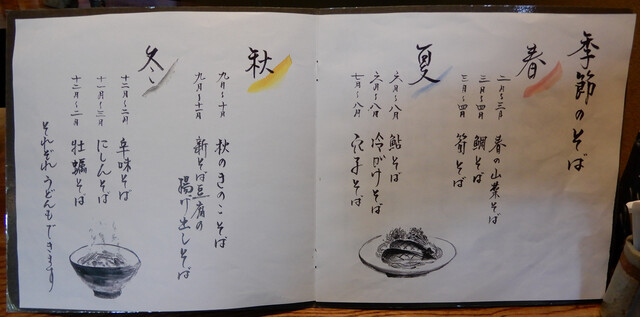 季節のそば
春
二月〜三月 春の山菜そば
三月〜四月 鯛そば
三月〜四月 筍そば
夏
六月〜八月 鮎そば
六月〜八月 冷がけそば
七月〜八月 そば
秋
九月〜十月 秋のきのこそば
九月〜十一月 新そば豆腐の
揚げ出しそば
冬
十二月〜二月 辛味そば
十一月〜三月 にしんそば
十二月〜二月 牡蠣そば
それぞれうどんもできます